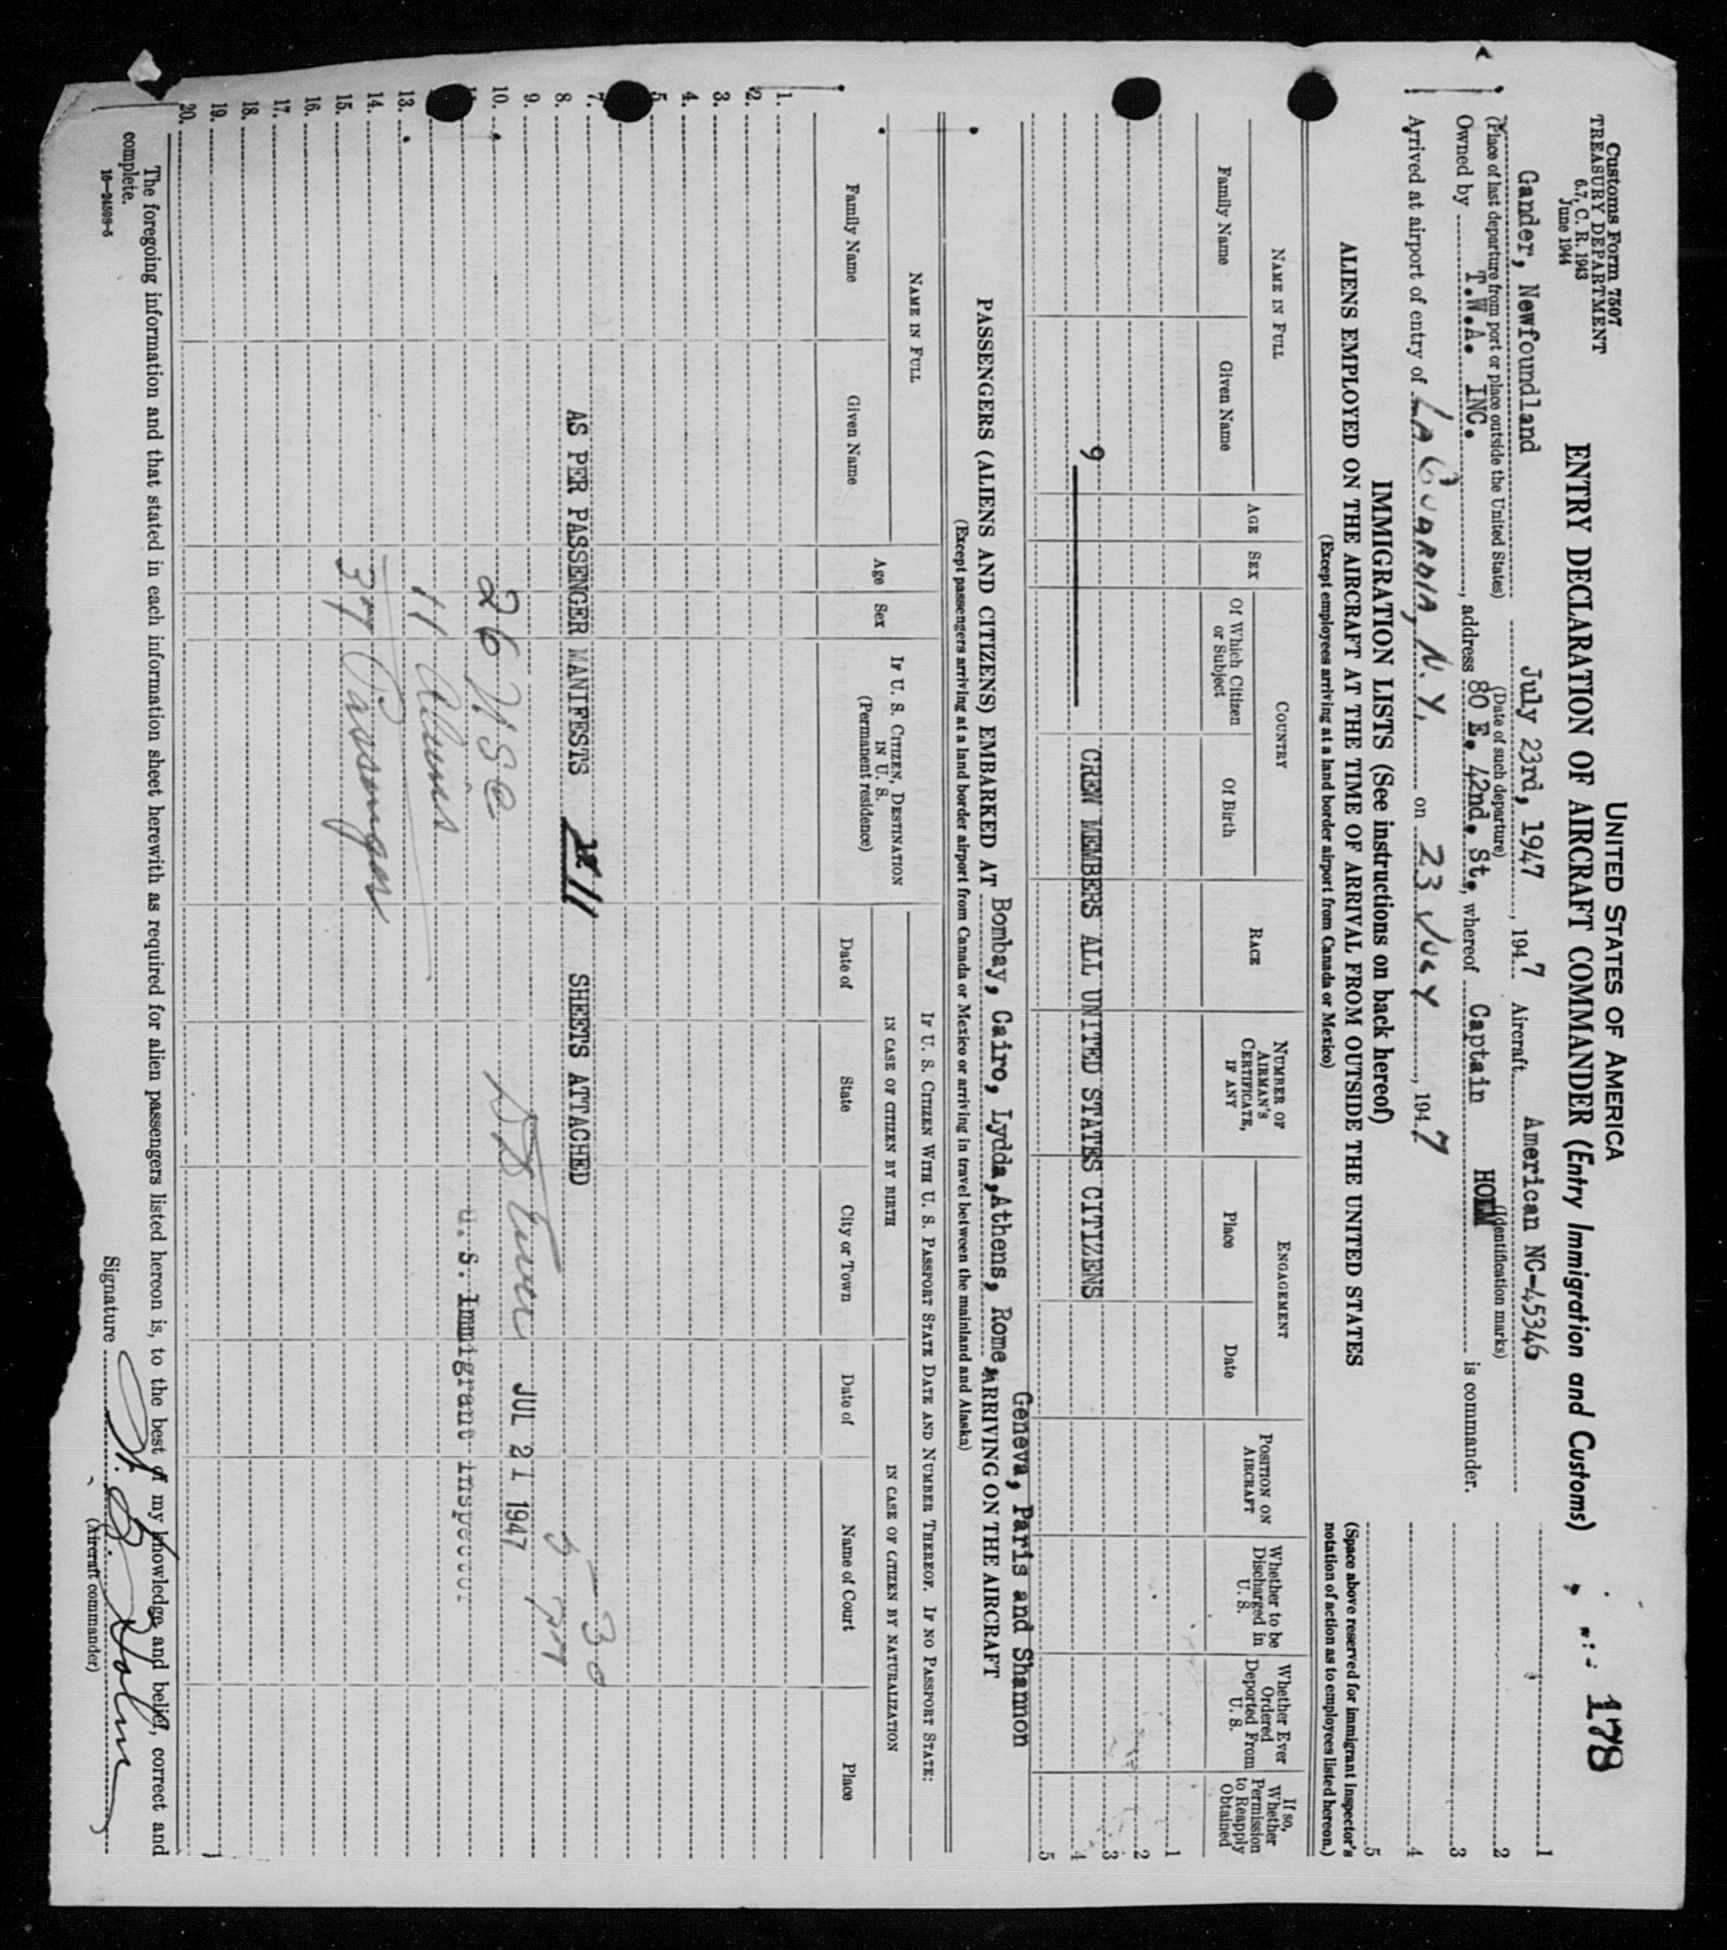 Customs Form 7507
TREASURY DEPARTMENT
6.7, C. R. 1943
June 1944
UNITED STATES OF AMERICA
ENTRY DECLARATION OF AIRCRAFT COMMANDER (Entry Immigration and Customs)
178
Gander, Newfoundland July 23rd, 1947, 1947 Aircraft American NC-45346
(Place of last departure from port or place outside the United States) (Date of such departure) (Identification marks)
Owned by T.W.A. INC., address 80 E. 42nd. St., whereof Captain HOLM is commander.
Arrived at airport of entry of LA GUARDIA, N.Y. on 23 JULY, 1947
1
2
3
4
5
(Space above reserved for immigrant inspector's
notation of action as to employees listed hereon.)
IMMIGRATION LISTS (See instructions on back hereof)
ALIENS EMPLOYED ON THE AIRCRAFT AT THE TIME OF ARRIVAL FROM OUTSIDE THE UNITED STATES
(Except employees arriving at a land border airport from Canada or Mexico)
NAME IN FULL
Family Name
Given Name
AGE
SEX
COUNTRY
Of Which Citizen
or Subject
Of Birth
RACE
NUMBER OF
AIRMAN'S
CERTIFICATE,
IF ANY
ENGAGEMENT
Place
Date
POSITION ON
AIRCRAFT
Whether to be
Discharged in
U. S.
Whether Ever
Ordered
Deported From
U. S.
If so,
Whether
Permission
to Reapply
Obtained
1
2
3
9 CREW MEMBERS ALL UNITED STATES CITIZENS
4
5
Geneva, Paris and Shannon
PASSENGERS (ALIENS AND CITIZENS) EMBARKED AT Bombay, Cairo, Lydda, Athens, Rome, ARRIVING ON THE AIRCRAFT
(Except passengers arriving at a land border airport from Canada or Mexico or arriving in travel between the mainland and Alaska)
NAME IN FULL
Family Name
Given Name
Age
Sex
IF U. S. CITIZEN, DESTINATION
IN U. S.
(Permanent residence)
IF U. S. CITIZEN WITH U. S. PASSPORT STATE DATE AND NUMBER THEREOF. IF NO PASSPORT STATE:
IN CASE OF CITIZEN BY BIRTH
Date of
State
City or Town
IN CASE OF CITIZEN BY NATURALIZATION
Date of
Name of Court
Place
1.
2.
3.
4.
5.
7.
8.
AS PER PASSENGER MANIFESTS 11 SHEETS ATTACHED
5-30
PM
9.
10.
26 USC
JUL 21 1947
U. S. Immigrant Inspector
11 Aliens
13.
14.
37 Passenger
15.
16.
17.
18.
19.
20.
The foregoing information and that stated in each information sheet herewith as required for alien passengers listed hereon is, to the best of my knowledge and belief, correct and
complete.
16-24598-5
Signature
(Aircraft commander)